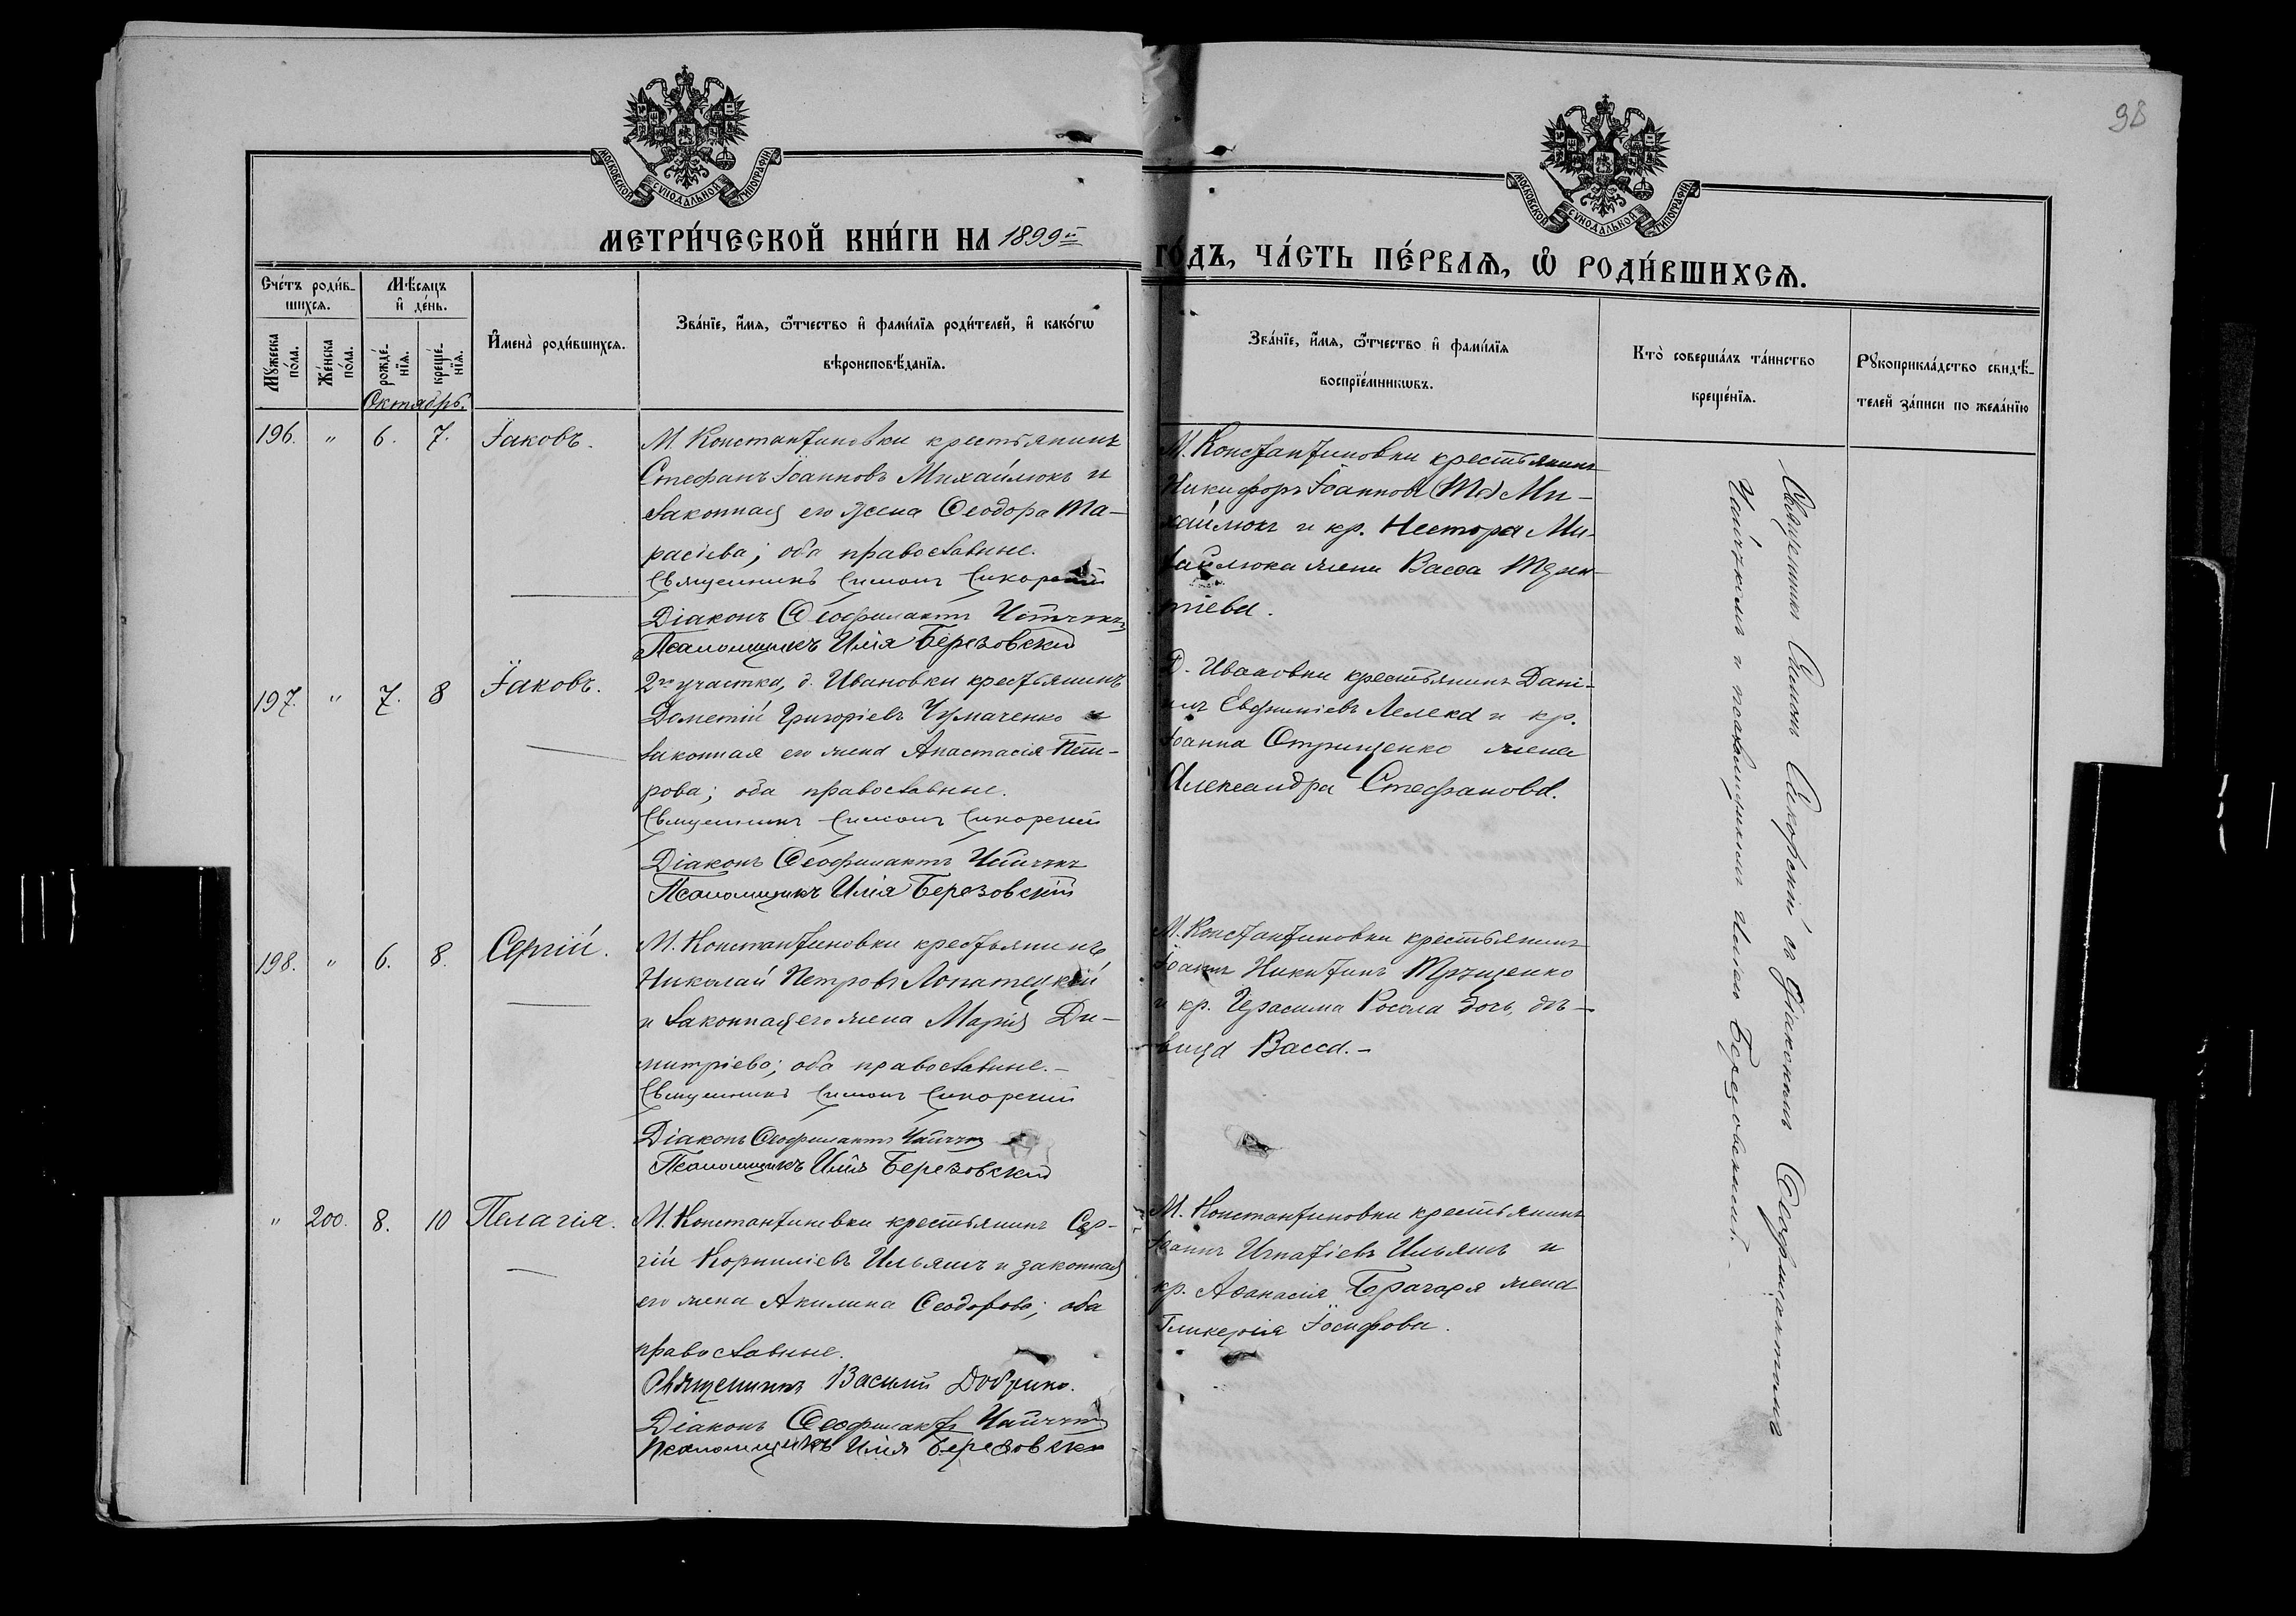 98
МОСКОВСКОЙ СѴНОДАЛЬНОЙ ТИПОГРАФІИ
МОСКОВСКОЙ СѴНОДАЛЬНОЙ ТИПОГРАФІИ
МЕТРИ́ЧЕСКОЙ КНИ́ГИ НА 1899й
ГО́ДЪ, ЧА́СТЬ ПЕ́РВАѦ, Ѽ РОДИ́ВШИХСѦ.
Сче́тъ роди́в-
шихсѧ.
Мꙋ́жеска по́ла.
Же́нска по́ла.
Мѣ́сѧцъ
и҆ де́нь.
рожде́-нїѧ.
креще́-нїѧ.
Октябрь.
И҆мена̀ роди́вшихсѧ.
Зва́нїе, и҆́мѧ, ѻ҆́тчество и҆ фами́лїѧ роди́телей, и҆ како́гѡ
вѣроисповѣ́данїѧ.
Зва́нїе, и҆́мѧ, ѻ҆́тчество и҆ фами́лїѧ
воспрїе́мникѡвъ.
Кто̀ соверша́лъ та́инство
креще́нїѧ.
Рꙋкоприкла́дство свидѣ́-
телей за́писи по жела́нїю
196. " 6. 7. Іаковъ.
М. Константиновки крестьянинъ
Стефанъ Іоанновъ Михайлюкъ и
законная его жена Ѳеодора Та-
расіева; оба православные.
Священникъ Симонъ Сикорскій
Діаконъ Ѳеофилактъ
Псаломщикъ Илія Березовскій
М. Константиновки крестьянинъ
Никифоръ Іоанновъ Ми-
хайлюкъ и кр. Нестора Ми-
хайлюка жена Васса
тіева.
197. " 7. 8 Іаковъ.
2го участка, д. Ивановки крестьянинъ
Дометій Григоріевъ Чумаченко и
законная его жена Анастасія Пет-
рова; оба православные.
Священникъ Симонъ Сикорскій
Діаконъ Ѳеофилактъ
Псаломщикъ Илія Березовскій
Д. Ивановки крестьянинъ Дані-
илъ Евфиміевъ Лелека и кр.
Іоанна Отрищенко жена
Александра Стефанова.
198. " 6. 8. Сергій.
М. Константиновки крестьянинъ
Николай Петровъ Лопатецкій
и законная его жена Марія Ди-
митріева; оба православные.-
Священникъ Симонъ Сикорскій
Діаконъ Ѳеофилактъ
Псаломщикъ Илія Березовскій
М. Константиновки крестьянинъ
Іоаннъ Никитинъ
и кр. Герасима Росола дочь, дѣ-
вица Васса.-
" 200. 8. 10 Пелагія.
М. Константиновки крестьянинъ Сер-
гій Корниліевъ Ильяшъ и законная
его жена Акилина Ѳеодорова; оба
православные.
Священникъ Василій
Діаконъ Ѳеофилактъ
Псаломщикъ Илія Березовскій
М. Константиновки крестьянинъ
Іоаннъ Игнатіевъ Ильяшъ и
кр. Аѳанасія Брагаря жена
Гликерія Іосифова.
Священникъ Симонъ Сикорскій съ діакономъ Ѳеофилактомъ
и псаломщикомъ Иліею Березовскимъ.